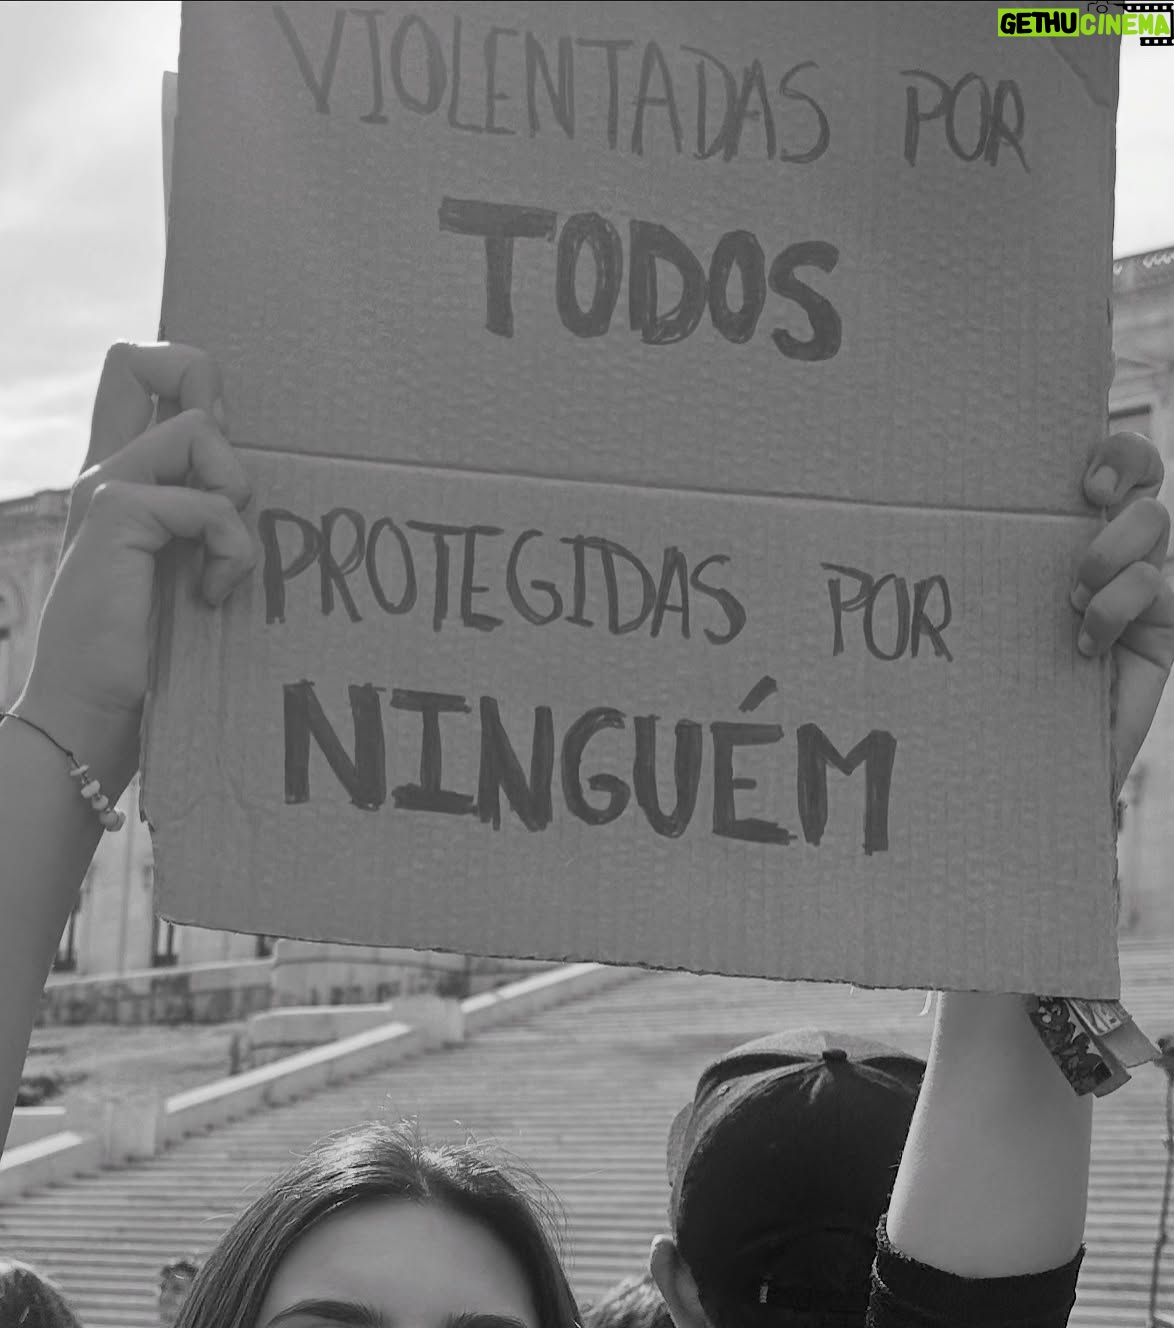 GETHUCINEMA
VIOLENTADAS POR
TODOS
PROTEGIDAS POR
NINGUÉM